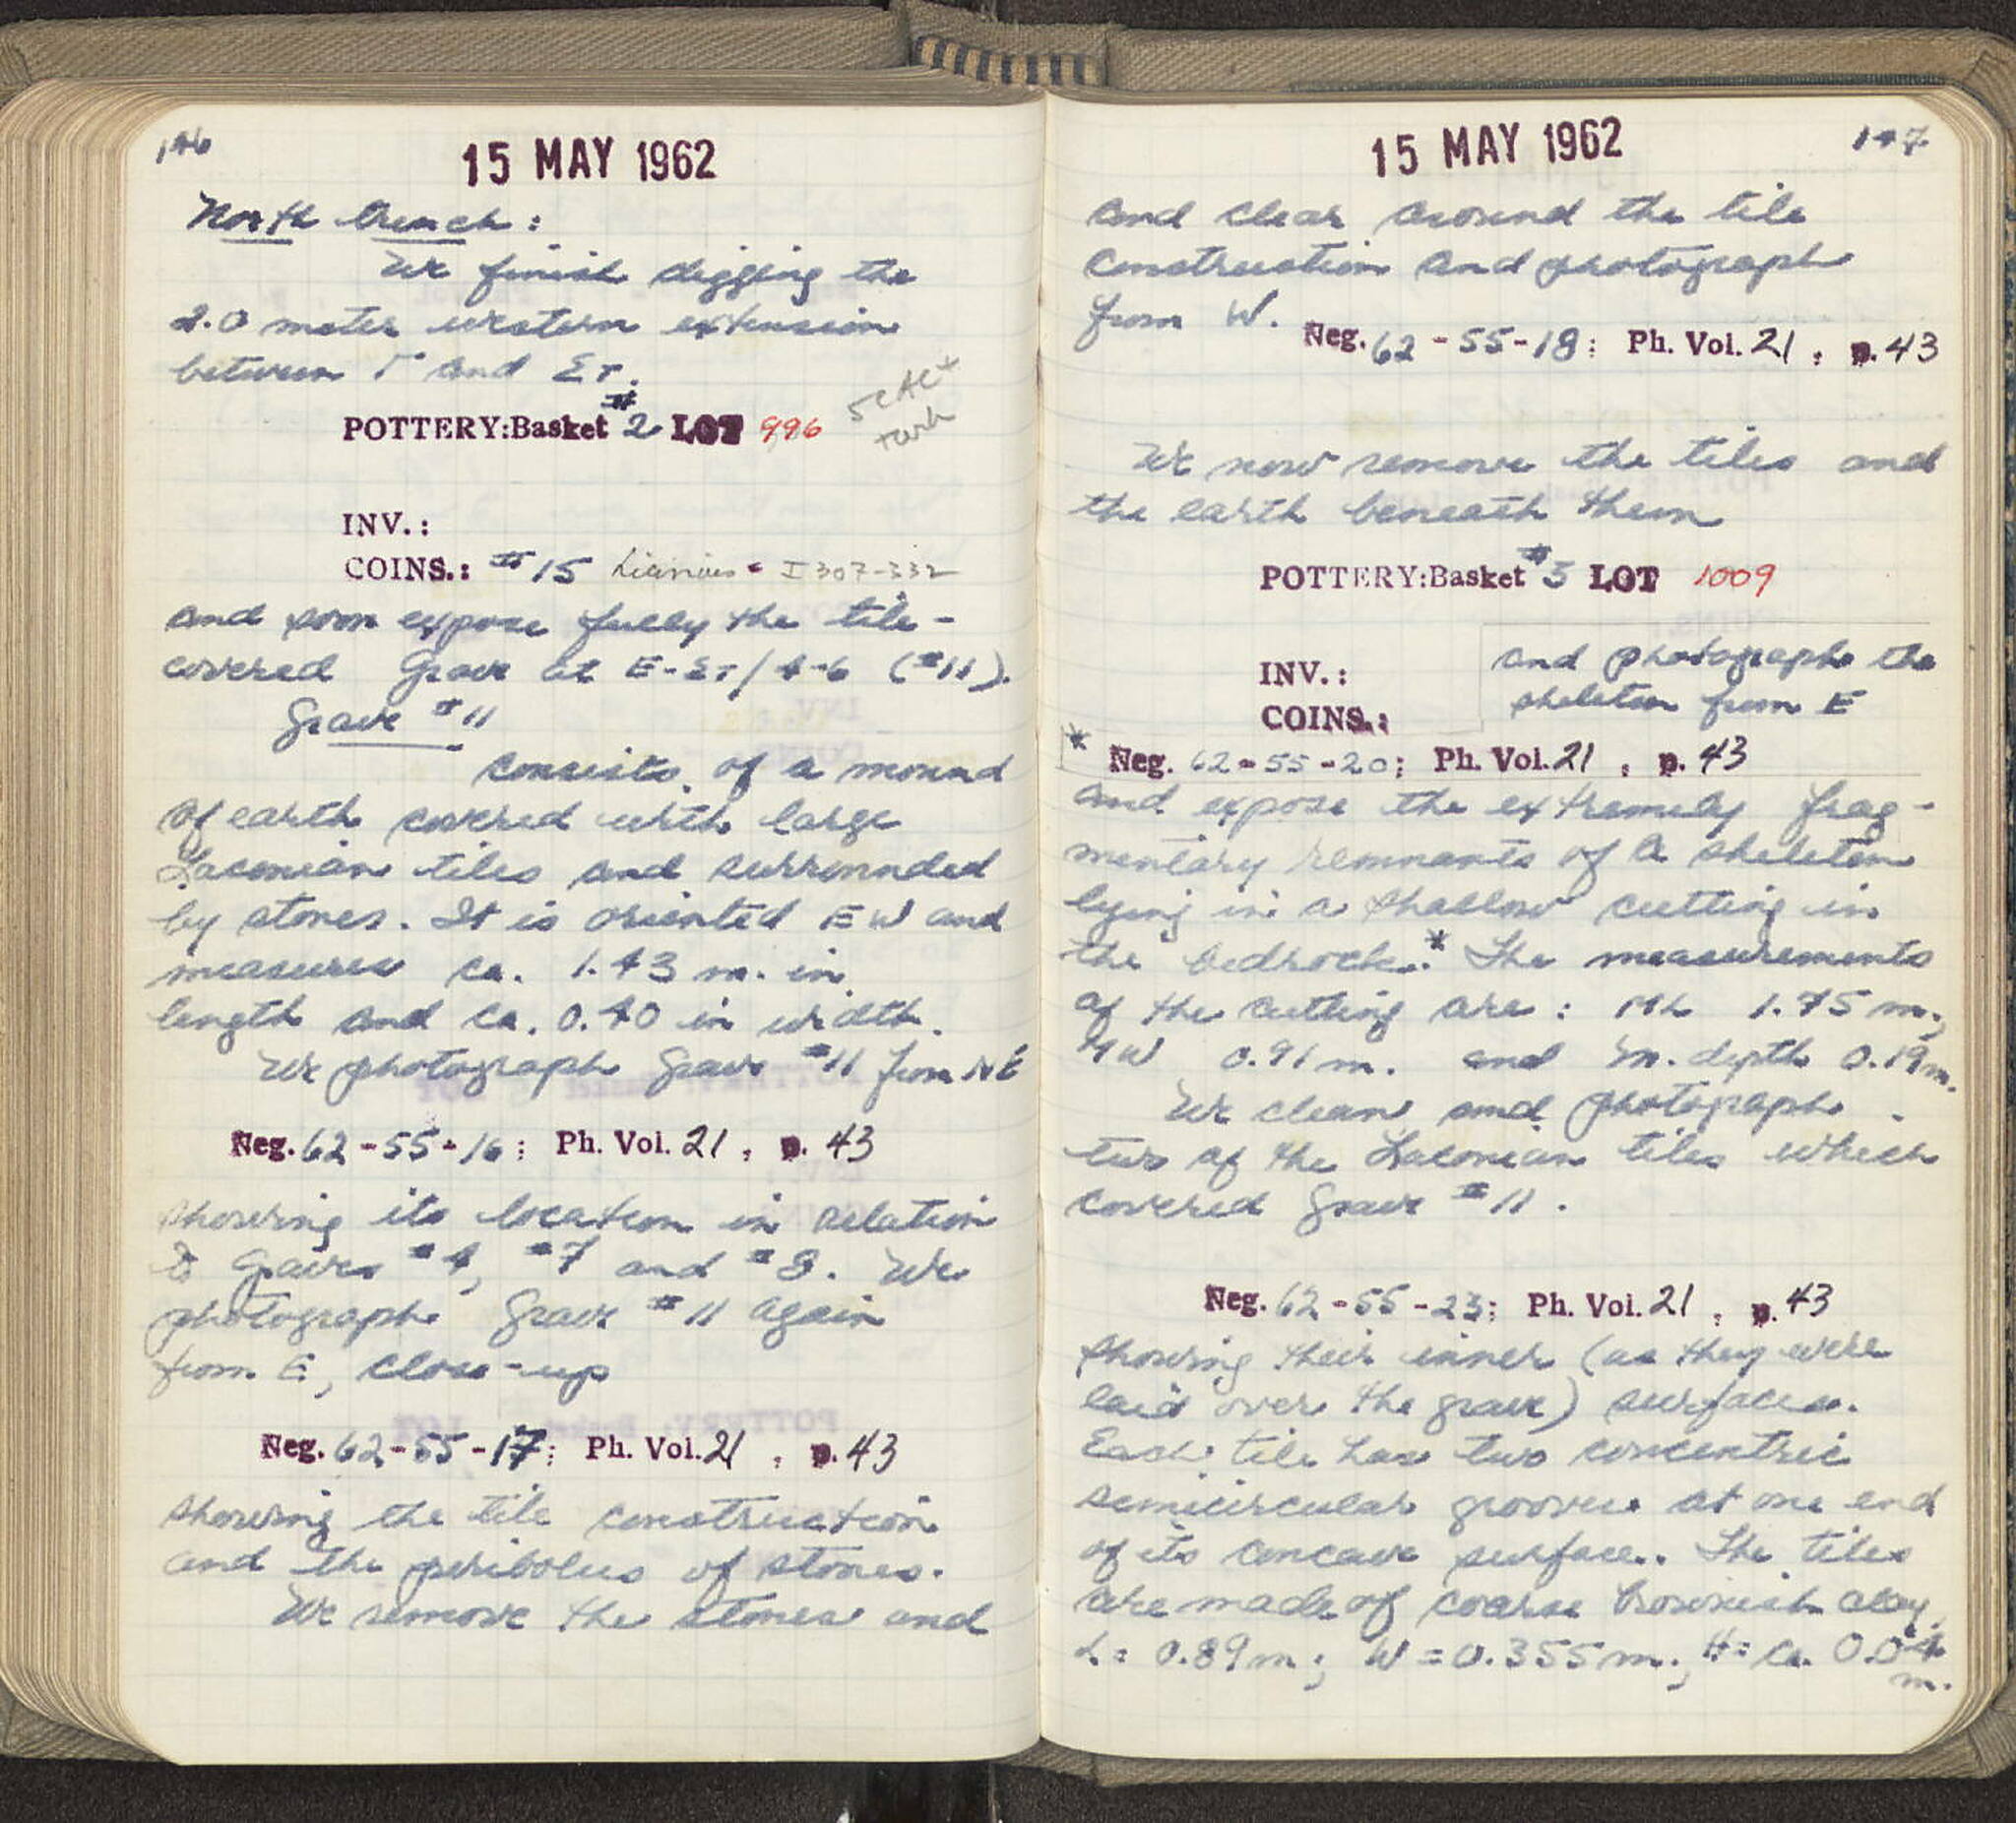 146
15 MAY 1962
North trench:
We finish digging the
2.0 meter western extension
between Γ and Στ.
POTTERY: Basket #2 LOT 996
5c AC+
turk
INV.:
COINS.: #15 Licinius I 307-332
and soon expose fully the tile-
covered Grave at E-Στ/4-6 (#11).
Grave #11
consists of a mound
of earth covered with large
Laconian tiles and surrounded
by stones. It is oriented EW and
measures ca. 1.43 m. in
length and ca. 0.40 in width.
We photograph Grave #11 from NE
Neg. 62-55-16; Ph. Vol. 21, p. 43
showing its location in relation
to Graves #4, #7 and #8. We
photograph Grave #11 again
from E, close-up
Neg. 62-55-17; Ph. Vol. 21, p. 43
showing the tile construction
and the peribolus of stones.
We remove the stones and
147
15 MAY 1962
and clear around the tile
construction and photograph
from W.
Neg. 62-55-18; Ph. Vol. 21, p. 43
We now remove the tiles and
the earth beneath them
POTTERY: Basket #3 LOT 1009
INV.:
COINS.:
and photograph the
skeleton from E
* Neg. 62-55-20; Ph. Vol. 21, p. 43
and expose the extremely frag-
mentary remnants of a skeleton
lying in a shallow cutting in
the bedrock.* The measurements
of the cutting are: ML 1.75 m.,
MW 0.91 m. and m. depth 0.19 m.
We clean and photograph
two of the Laconian tiles which
covered Grave #11.
Neg. 62-55-23; Ph. Vol. 21, p. 43
showing their inner (as they were
laid over the grave) surfaces.
Each tile has two concentric
semicircular grooves at one end
of its concave surface. The tiles
are made of coarse brownish clay.
L: 0.89 m; W = 0.355 m.; H = ca. 0.04
m.